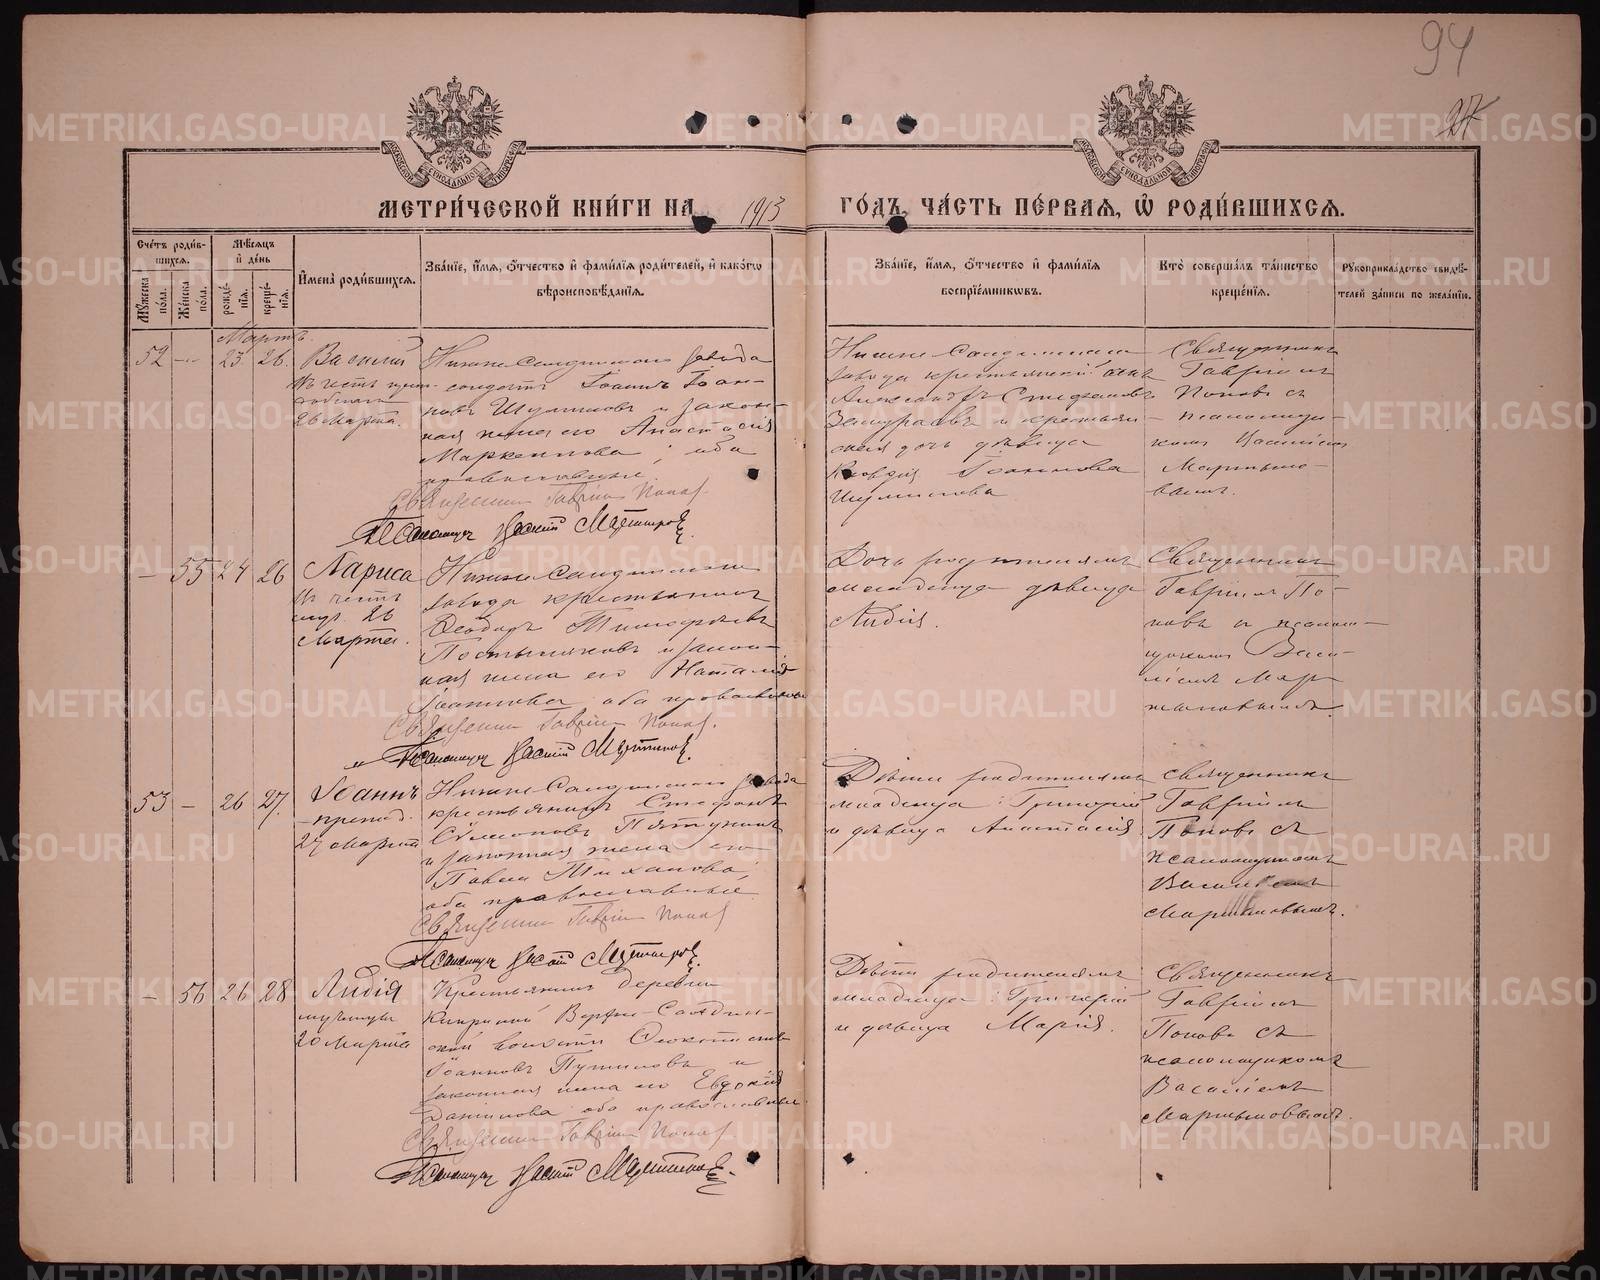 94
27
МЕТРИ́ЧЕСКОЙ КНИ́ГИ НА 1913 ГО́ДЪ, ЧА́СТЬ ПЕ́РВАЯ, Ѡ҆ РОДИ́ВШИХСЯ.
Сче́тъ роди́в-
шихся.
Мѣ́сяцъ
и҆ де́нь
Му́жеска
по́ла.
Же́нска
по́ла.
рожде́-
нїя.
креще́-
нїя.
И҆мена̀ роди́вшихся.
Зва́нїе, и҆́мя, ѻ҆́тчество и҆ фами́лїя роди́телей, и҆ како́гѡ
вѣроисповѣ́данїя.
Зва́нїе, и҆́мя, ѻ҆́тчество и҆ фами́лїя
воспрїе́мниковъ.
Кто̀ соверша́лъ та́инство
креще́нїя.
Рукоприкла́дство свидѣ́-
телей за́писи по жела́нїю.
Мартъ
52 — 23 26.
Василій
въ честь
26 Марта.
Нижне-Салдинскаго завода
солдатъ Іоаннъ Іоан-
новъ Шумиловъ и закон-
ная жена его Анастасія
Маркеллова; оба
православные
Священникъ Гавріилъ Поповъ
Псаломщикъ Василій Мартыновъ
Нижне-Салдинскаго
завода крестьянскій сынъ
Александръ Стефановъ
и крестьян-
ская дочь дѣвица
Клавдія Іоаннова
Шумилова
Священникъ
Гавріилъ
Поповъ съ
псаломщи-
комъ Василіемъ
Мартыно-
вымъ.
— 55 24 26
Лариса
въ честь
муч. 26
Марта.
Нижне-Салдинскаго
завода крестьянинъ
Ѳеодоръ Тимофеевъ
Постыляковъ и закон-
ная жена его Наталія
оба православные
Священникъ Гавріилъ Поповъ.
Псаломщикъ Василій Мартыновъ
Дочь родителямъ
младенца дѣвица
Лидія.
Священникъ
Гавріилъ По-
повъ съ псалом-
щикомъ Васи-
ліемъ Мар-
тыновымъ.
53 — 26 27.
Іоаннъ
препод.
27 Марта
Нижне-Салдинскаго завода
крестьянинъ Стефанъ
Сѵмеоновъ
и законная жена его
Павла Тиханова;
оба православные
Священникъ Гавріилъ Поповъ
Псаломщикъ Василій Мартыновъ
Дѣти родителямъ
младенца: Григорій
и дѣвица Анастасія
Священникъ
Гавріилъ
Поповъ съ
псаломщикомъ
Василіемъ
Мартыновымъ.
— 56 26 28
Лидія
мученицы
23 Марта
Крестьянинъ деревни
Верхне-Салдин-
ской волости
Іоанновъ Путиловъ и
законная жена его Евдокія
Данилова оба православные.
Священникъ Гавріилъ Поповъ
Псаломщикъ Василій Мартыновъ
Дѣти родителямъ
младенца: Григорій
и дѣвица Марія.
Священникъ
Гавріилъ
Поповъ съ
псаломщикомъ
Василіемъ
Мартыновымъ.
METRIKI.GASO-URAL.RU